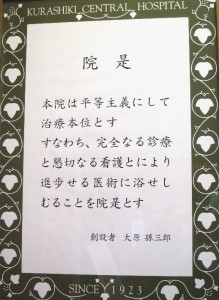 KURASHIKI CENTRAL HOSPITAL
院是
本院は平等主義にして
治療本位とす
すなわち、完全なる診療
と懇切なる看護とにより
進歩せる医術に浴せし
むることを院是とす
創設者 大原 孫三郎
SINCE 1923